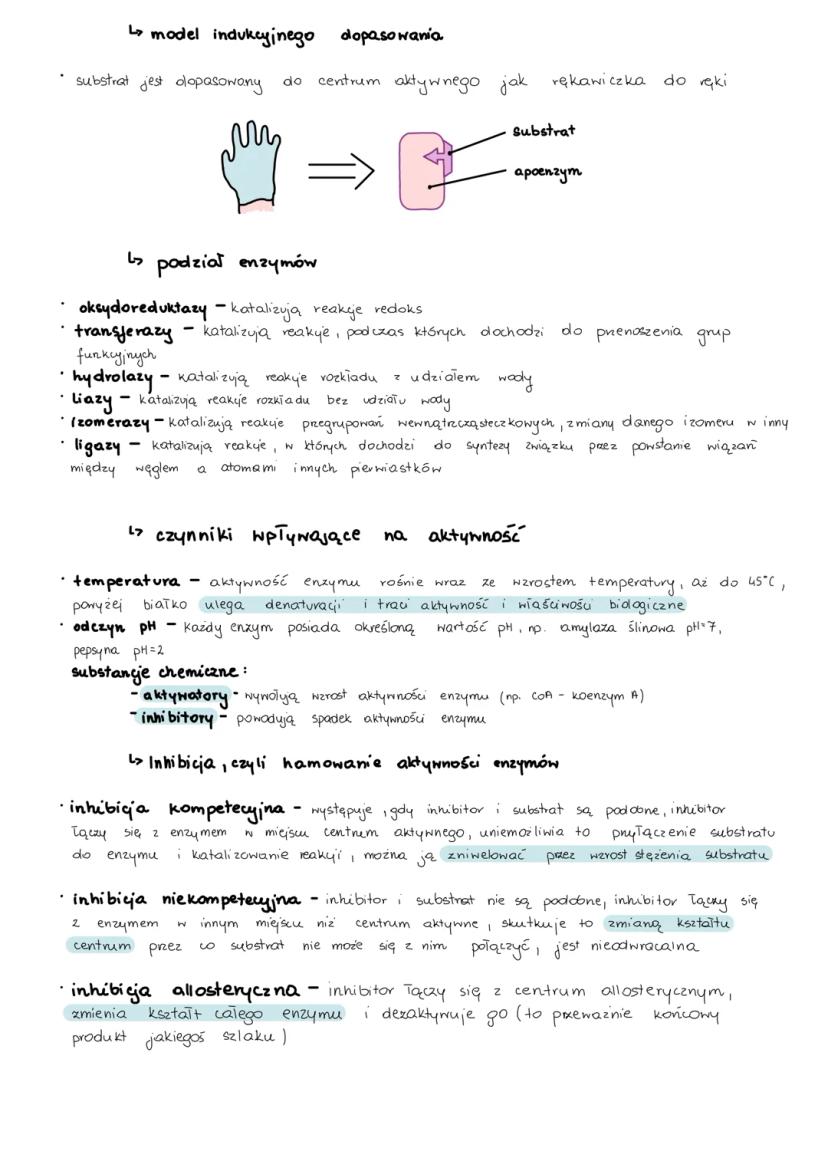 ↳ model indukcyjnego dopasowania
• substrat jest dopasowany do centrum aktywnego jak rękawiczka do ręki
substrat
apoenzym
↳ podział enzymów
• oksydoreduktazy – katalizują reakcje redoks
• transferazy – katalizują reakcje, podczas których dochodzi do przenoszenia grup
funkcyjnych
• hydrolazy – katalizują reakcje rozkładu z udziałem wody
• liazy – katalizują reakcje rozkładu bez udziału wody
• izomerazy – katalizują reakcje przegrupowań wewnątrzcząsteczkowych, zmiany danego izomeru w inny
• ligazy – katalizują reakcje, w których dochodzi do syntezy związku przez powstanie wiązań
między węglem a atomami innych pierwiastków
↳ czynniki wpływające na aktywność
• temperatura – aktywność enzymu rośnie wraz ze wzrostem temperatury, aż do 45°C,
powyżej białko ulega denaturacji i traci aktywność i właściwości biologiczne
• odczyn pH – każdy enzym posiada określoną wartość pH, np. amylaza ślinowa pH=7,
pepsyna pH=2
substancje chemiczne:
- aktywatory - wywołują wzrost aktywności enzymu (np. CoA - koenzym A)
- inhibitory - powodują spadek aktywności enzymu
↳ Inhibicja, czyli hamowanie aktywności enzymów
• inhibicja kompetecyjna – występuje, gdy inhibitor i substrat są podobne, inhibitor
łączy się z enzymem w miejscu centrum aktywnego, uniemożliwia to przyłączenie substratu
do enzymu i katalizowanie reakcji, można ją zniwelować przez wzrost stężenia substratu
• inhibicja niekompetecyjna – inhibitor i substrat nie są podobne, inhibitor łączy się
z enzymem w innym miejscu niż centrum aktywne, skutkuje to zmianą kształtu
centrum przez co substrat nie może się z nim połączyć, jest nieodwracalna
• inhibicja allosteryczna – inhibitor łączy się z centrum allosterycznym,
zmienia kształt całego enzymu i dezaktywuje go (to przeważnie końcowy
produkt jakiegoś szlaku)